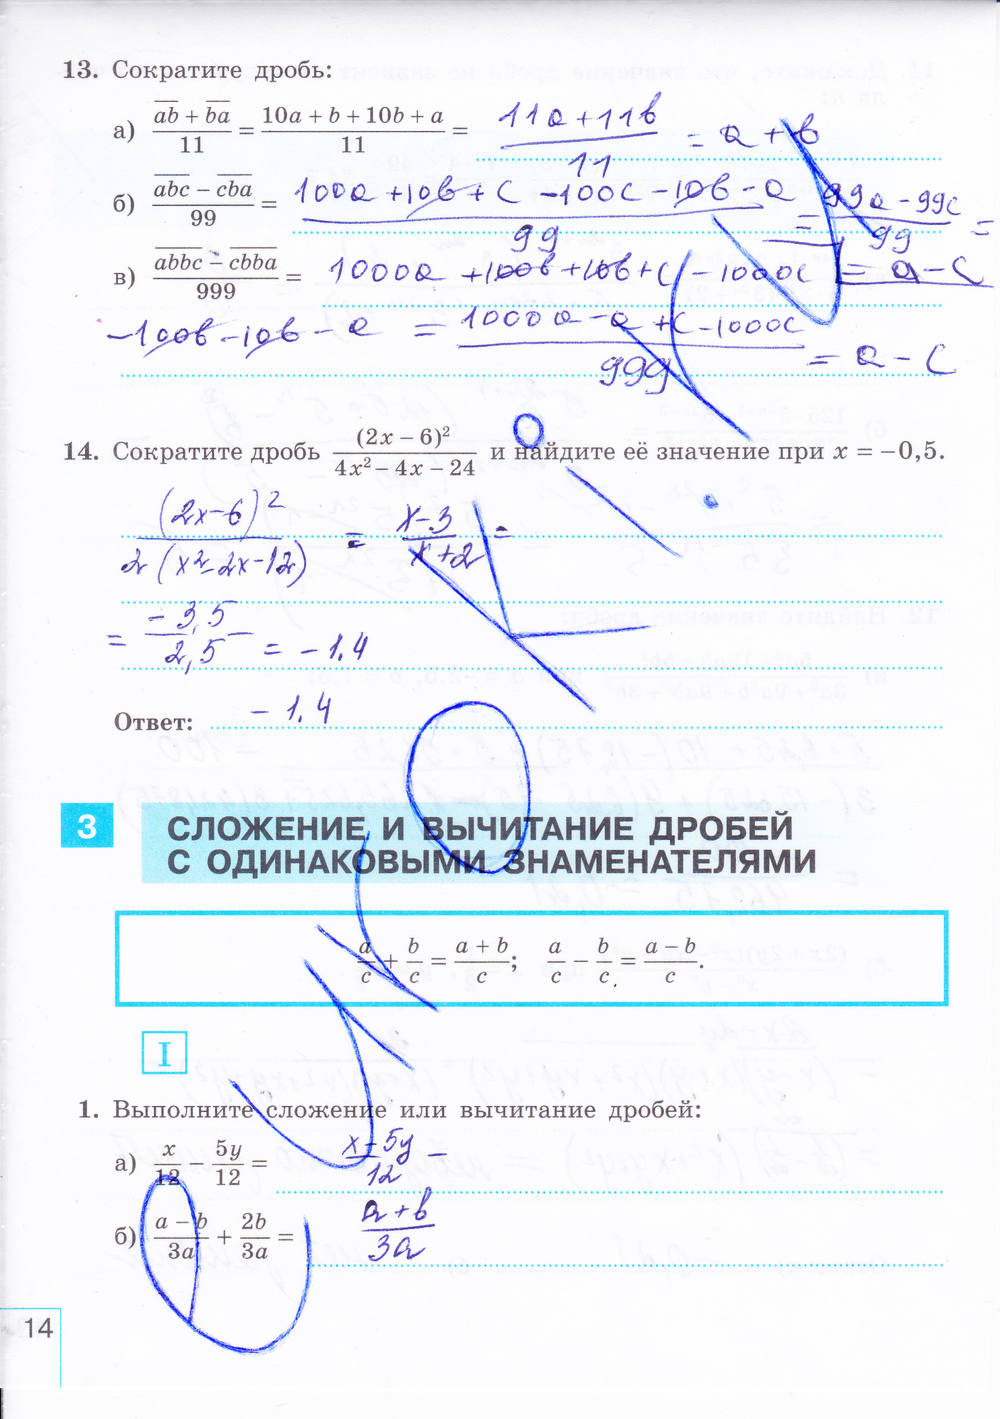 13. Сократите дробь:
а) (ab + ba)/11 = (10a + b + 10b + a)/11 = (11a + 11b)/11 = a + b
б) (abc − cba)/99 = (100a + 10b + c − 100c − 10b − a)/99 = (99a − 99c)/99 =
= a − c
в) (abbc − cbba)/999 = 1000a + 100b + 10b + c − 1000c
− 100b − 10b − a = (1000a − a + c − 1000c)/999 = a − c
14. Сократите дробь (2x − 6)²/(4x² − 4x − 24) и найдите её значение при x = −0,5.
(2x − 6)²/2(x² − 2x − 12) = (x − 3)/(x + 2) =
= −3,5/2,5 = −1.4
Ответ: −1.4
3 СЛОЖЕНИЕ И ВЫЧИТАНИЕ ДРОБЕЙ
С ОДИНАКОВЫМИ ЗНАМЕНАТЕЛЯМИ
a/c + b/c = (a + b)/c; a/c − b/c = (a − b)/c.
I
1. Выполните сложение или вычитание дробей:
а) x/12 − 5y/12 = (x − 5y)/12
б) (a − b)/3a + 2b/3a = (a + b)/3a
14